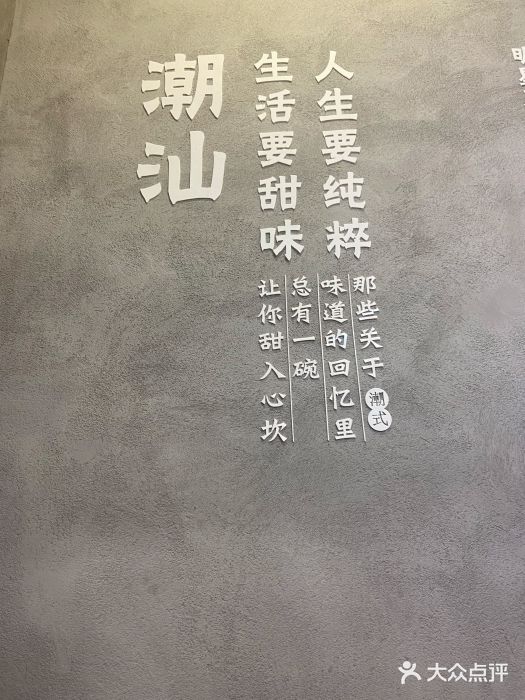 人生要纯粹
生活要甜味
潮汕
那些关于潮式
味道的回忆里
总有一碗
让你甜入心坎
大众点评